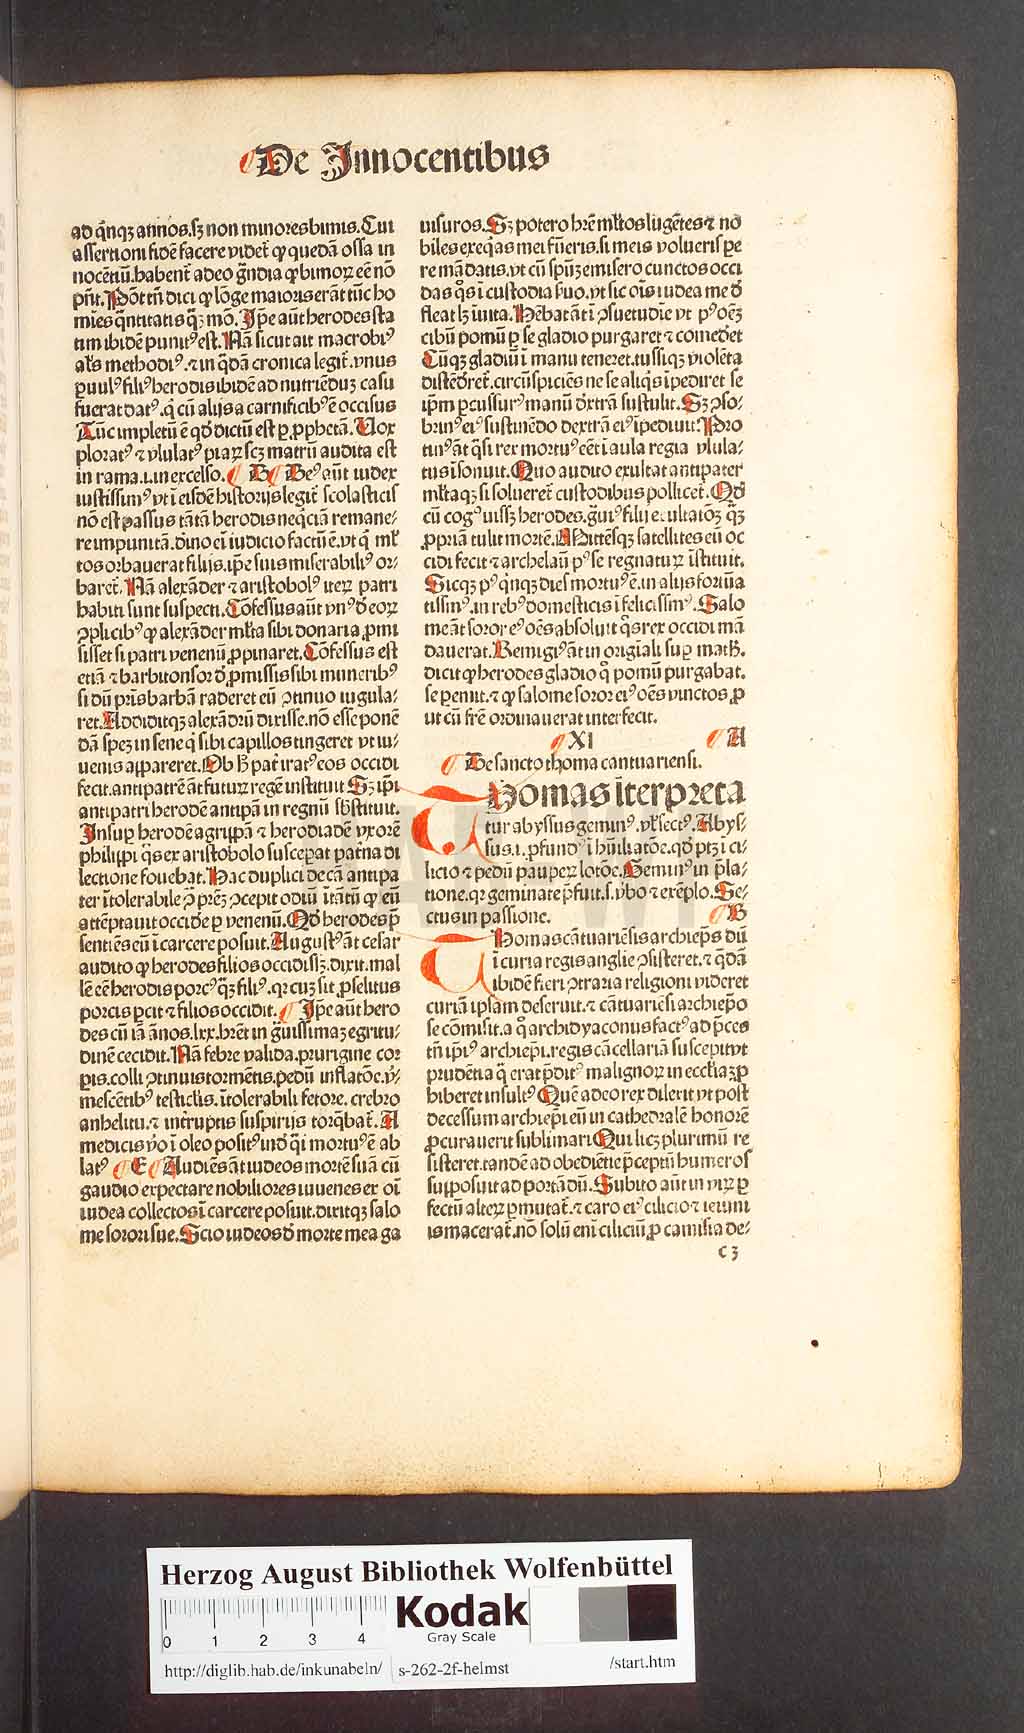 De Innocentibus
ad q̄nqꝫ annos.sꝫ non minores bimis.Cui
assertioni fidē facere videt̄ ꝙ quedā ossa in
nocētiū.habent̄ adeo grādia ꝙ bimoꝝ eē nō
pn̄t.Pōt tn̄ dici ꝙ lōge maioris erāt tūc ho
mīes q̄ntitatis qꝫ mō.Ip̄e aūt herodes sta
tim ibidē punitꝰ est.Nā sicut ait macrobiꝰ
al's methodiꝰ.⁊ in q̄dā cronica legit̄.vnus
ꝑuulꝰ filiꝰ herodis ibidē ad nutriēduꝫ casu
fuerat datꝰ.q̄ cū alijs a carnificibꝰ ē occisus
Tūc impletū ē qd̄ dictū est ꝑ ꝓphetā.Vox
ploratꝰ ⁊ vlulatꝰ piaꝝ scꝫ matrū audita est
in rama.i.in excelso. B Deꝰ aūt iudex
iustissimꝰ vt ī eisdē historijs legit̄ scolasticis
nō est passus tātā herodis neq̄ciā remane⸗
re impunitā.diuino ei iudicio factū ē.vt q̄ ml̄
tos orbauerat filijs.ip̄e suis miserabiliꝰ or⸗
baret̄.Nā alexāder ⁊ aristobolꝰ iteꝝ patri
habiti sunt suspecti.Cōfessus aūt vnꝰ d̄ eoꝝ
ꝯplicibꝰ ꝙ alexāder ml̄ta sibi donaria ꝓmi
sisset si patri venenū ꝓpinaret.Cōfessus est
etiā ⁊ barbitonsor d̄ ꝓmissis sibi muneribꝰ
si dū pr̄is barbā raderet eū ꝯtinuo iugula⸗
ret.Addiditqꝫ alexādrū dixisse.nō esse ponē
dā speꝫ in sene q̄ sibi capillos tingeret vt iu⸗
uenis appareret.Ob h̄ pat̄ iratꝰ eos occidi
fecit.antipatrē āt futurꝝ regē instituit.Sꝫ ip̄i
antipatri herodē antipā in regnū sb̄stituit.
Insuꝑ herodē agripā ⁊ herodiadē vxorē
philippi q̄s ex aristobolo susceꝑat pat̄na di
lectione fouebat.Hac duplici de cā antipa
ter ītolerabile ꝯ̄ prēꝫ ꝯcepit odiū ītātū ꝙ eū
attēptauit occidē ꝑ venenū.Qd̄ herodes p̄
sentiēs eū ī carcere posuit.Augustꝰ āt cesar
audito ꝙ herodes filios occidissꝫ.dixit.mal
lē eē herodis porcꝰ qꝫ filiꝰ.qꝛ cuꝫ sit ꝓselitus
porcis ꝑcit ⁊ filios occidit. Ip̄e aūt hero
des cū iā ānos.lxx.hr̄et in gūissimaꝫ egritu⸗
dinē cecidit.Nā febre valida.prurigine cor
ꝑis.colli ꝯtinuis tormētis.pedū inflatōe.v̓⸗
mescētibꝰ testiclis.ītolerabili fetore.crebro
anhelitu.⁊ int̄ruptis suspirijs torq̄bat̄.A
medicis v̓o ī oleo positꝰ inde q̄i mortuꝰ ē ab
latꝰ E Audiēs āt iudeos mortē suā cū
gaudio expectare nobiliores iuuenes ex oī
iudea collectos ī carcere posuit.dixitqꝫ salo
me sorori sue.Scio iudeos d̄ morte mea ga
uisuros.Sꝫ potero hr̄e ml̄tos lugētes ⁊ no
biles exeq̄as mei fūeris.si meis volueris pe
re mādatis.vt cū spūꝫ emisero cunctos occi
das q̄s ī custodia ẜuo.vt sic oīs iudea me d̄
fleat lꝫ inuita.Hēbat āt ī ꝯsuetudīe vt pꝰ oēꝫ
cibū pomū ꝑ se gladio purgaret ⁊ comedēt
Cūqꝫ gladiū ī manu teneret.tussiqꝫ violēta
distēderet̄.circūspiciēs ne se aliq̄s īpediret se
ip̄m ꝑcussurꝰ manū dextrā sustulit.Sꝫ ꝯso⸗
brinꝰ eiꝰ sustinēdo dextrā eiꝰ īpediuit.Pro
tinꝰ āt q̄si rex mortuꝰ eēt ī aula regia vlula⸗
tus īsonuit.Quo audito exultat antipater
ml̄taqꝫ si solueret̄ custodibus pollicet̄.Qd̄
cū cogꝰuissꝫ herodes.gūiꝰ filij exultatōꝫ qꝫ
ꝓpriā tulit mortē.Mittēsqꝫ satellites eū oc
cidi fecit ⁊ archelaū pꝰ se regnaturꝫ īstituit.
Sicqꝫ pꝰ q̄nqꝫ dies mortuꝰ ē.in alijs fortūa
tissimꝰ.in rebꝰ domesticis ī felicissimꝰ.Salo
me āt soror eꝰ oēs absoluit q̄s rex occidi mā
dauerat.Remigiꝰ āt in origīali suꝑ math.
dicit ꝙ herodes gladio q̄ pomū purgabat.
se ꝑemit.⁊ ꝙ salome soror eiꝰ oēs vinctos ꝓ
ut cū fr̄e ordinauerat interfecit.
XI A
De sancto thoma cantuariensi.
Thomas īterpreta
tur abyssus geminꝰ.vł sectꝰ.Abys⸗
sus.i.ꝓfundꝰ ī hūilatōe.qd̄ ptꝫ ī ci⸗
licio ⁊ pedū pauꝑeꝝ lotōe.Geminꝰ in p̄la⸗
tione.qꝛ geminate p̄fuit.s.v̓bo ⁊ exēplo.Se⸗
ctus in passione. B
Thomas cātuariēsis archiep̄s dū
ī curia regis anglie ꝯsisteret.⁊ q̄dā
ibidē fieri ꝯtraria religioni videret
curiā ip̄am deseruit.⁊ cātuariēsi archiep̄o
se cōmisit.a q̄ archidyaconus factꝰ ad p̄ces
tn̄ ip̄iꝰ archiep̄i.regis cācellariā suscepit vt
prudētia q̄ erat p̄ditꝰ malignoꝝ in ecctiaꝫ ꝓ
hiberet insultꝰ Quē adeo rex dilexit vt post
decessum archiep̄i eū in cathedralē honorē
ꝓcurauerit sublimari Qui licꝫ plurimū re
sisteret.tandē ad obediētie p̄ceptū humeros
supposuit ad portādū.Subito aūt in viꝝ ꝑ
fectū alteꝝ ꝑmutat̄.⁊ caro eiꝰ cilicio ⁊ ieiuni
is macerat̄.nō solū eni ciliciū ꝓ camisia de⸗
c 3
Herzog August Bibliothek Wolfenbüttel
0 1 2 3 4
Kodak
Gray Scale
http://diglib.hab.de/inkunabeln/ s-262-2f-helmst /start.htm